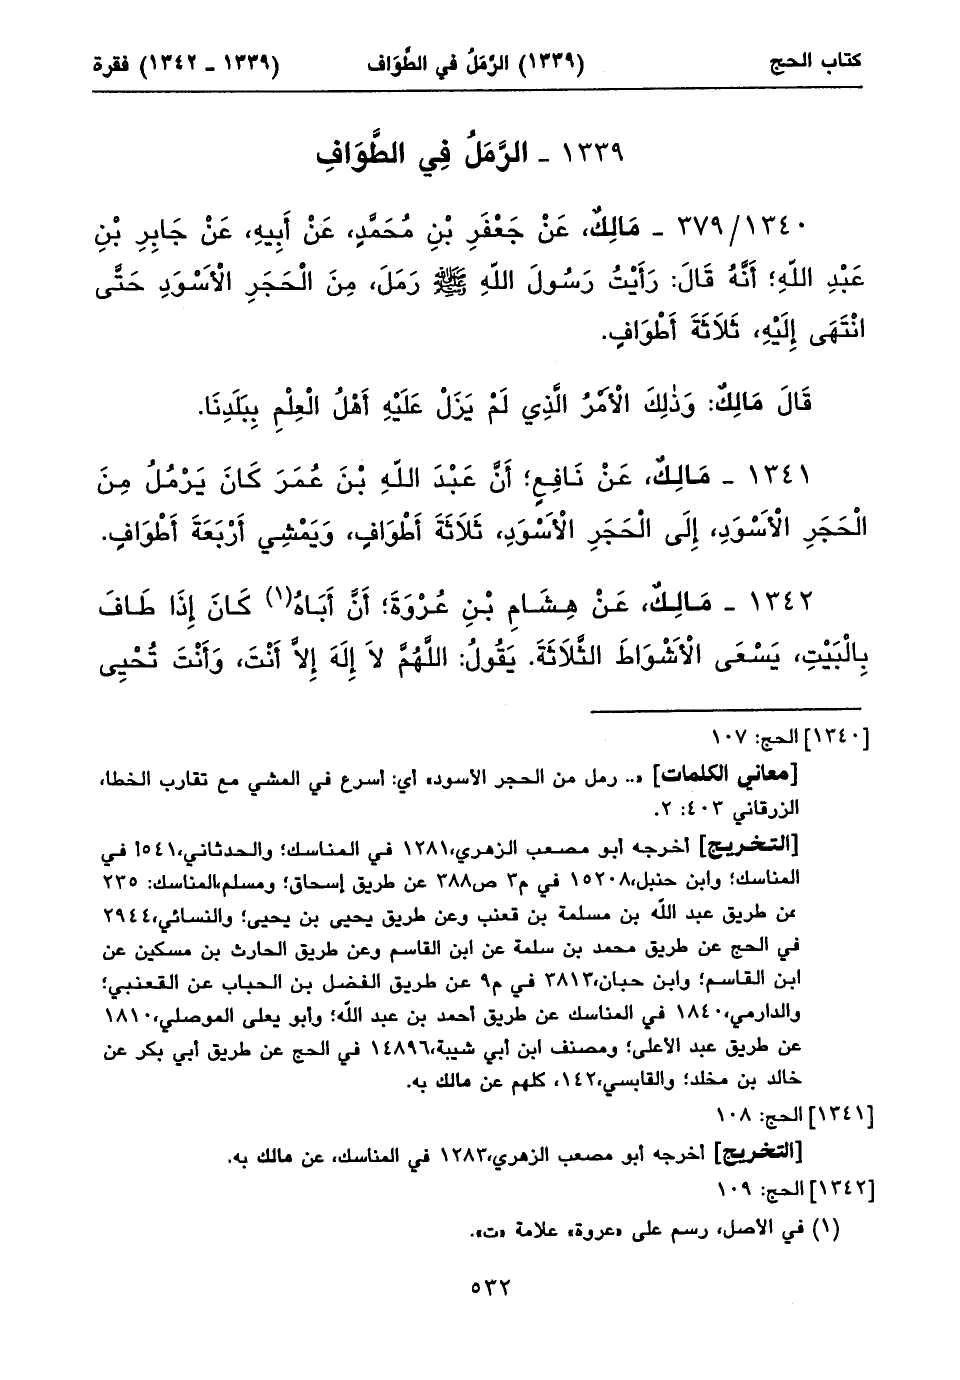 كتاب الحج (١٣٣٩) الرَّمَلُ في الطَّوَاف (١٣٣٩ - ١٣٤٢) فقرة
١٣٣٩ - الرَّمَلُ فِي الطَّوَافِ
٣٧٩/١٣٤٠ - مَالِكٌ، عَنْ جَعْفَرِ بْنِ مُحَمَّدٍ، عَنْ أَبِيهِ، عَنْ جَابِرِ بْنِ
عَبْدِ اللّهِ؛ أَنَّهُ قَالَ: رَأَيْتُ رَسُولَ اللّهِ ﷺ رَمَلَ، مِنَ الْحَجَرِ الْأَسْوَدِ حَتَّى
انْتَهَى إِلَيْهِ، ثَلَاثَةَ أَطْوَافٍ.
قَالَ مَالِكٌ: وَذٰلِكَ الْأَمْرُ الَّذِي لَمْ يَزَلْ عَلَيْهِ أَهْلُ الْعِلْمِ بِبَلَدِنَا.
١٣٤١ - مَالِكٌ، عَنْ نَافِعٍ؛ أَنَّ عَبْدَ اللّهِ بْنَ عُمَرَ كَانَ يَرْمُلُ مِنَ
الْحَجَرِ الْأَسْوَدِ، إِلَى الْحَجَرِ الْأَسْوَدِ، ثَلَاثَةَ أَطْوَافٍ، وَيَمْشِي أَرْبَعَةَ أَطْوَافٍ.
١٣٤٢ - مَالِكٌ، عَنْ هِشَامِ بْنِ عُرْوَةَ؛ أَنَّ أَبَاهُ(١) كَانَ إِذَا طَافَ
بِالْبَيْتِ، يَسْعَى الْأَشْوَاطَ الثَّلَاثَةَ. يَقُولُ: اللَّهُمَّ لاَ إِلَهَ إِلاَّ أَنْتَ، وَأَنْتَ تُحْيِى
[١٣٤٠] الحج: ١٠٧
[معاني الكلمات] «.. رمل من الحجر الأسود» أي: أسرع في المشي مع تقارب الخطا،
الزرقاني ٤٠٣: ٢.
[التخريج] أخرجه أبو مصعب الزهري،١٢٨١ في المناسك؛ والحدثاني،٥٤١أ في
المناسك؛ وابن حنبل،١٥٢٠٨ في م٣ ص٣٨٨ عن طريق إسحاق؛ ومسلم،المناسك: ٢٣٥
عن طريق عبد اللّه بن مسلمة بن قعنب وعن طريق يحيى بن يحيى؛ والنسائي،٢٩٤٤
في الحج عن طريق محمد بن سلمة عن ابن القاسم وعن طريق الحارث بن مسكين عن
ابن القاسم؛ وابن حبان،٣٨١٣ في م٩ عن طريق الفضل بن الحباب عن القعنبي؛
والدارمي،١٨٤٠ في المناسك عن طريق أحمد بن عبد اللّه؛ وأبو يعلى الموصلي،١٨١٠
عن طريق عبد الأعلى؛ ومصنف ابن أبي شيبة،١٤٨٩٦ في الحج عن طريق أبي بكر عن
خالد بن مخلد؛ والقابسي،١٤٢، كلهم عن مالك به.
[١٣٤١] الحج: ١٠٨
[التخريج] أخرجه أبو مصعب الزهري،١٢٨٣ في المناسك، عن مالك به.
[١٣٤٢] الحج: ١٠٩
(١) في الأصل، رسم على «عروة» علامة «ت».
٥٣٢